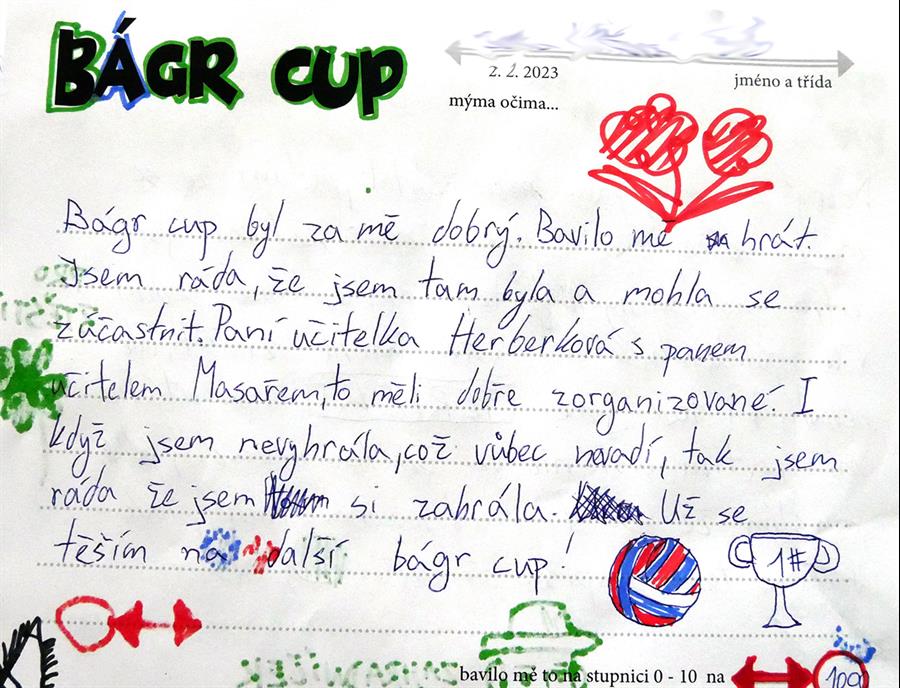 BÁGR CUP
2. 2. 2023
jméno a třída
mýma očima...
Bágr cup byl za mě dobrý. Bavilo mě hrát.
Jsem ráda, že jsem tam byla a mohla se
zúčastnit. Paní učitelka Herberková s panem
učitelem Masařem, to měli dobře zorganizované. I
když jsem nevyhrála, což vůbec nevadí, tak jsem
ráda že jsem si zahrála. Už se
těším na další bágr cup!
1#
bavilo mě to na stupnici 0 - 10 na